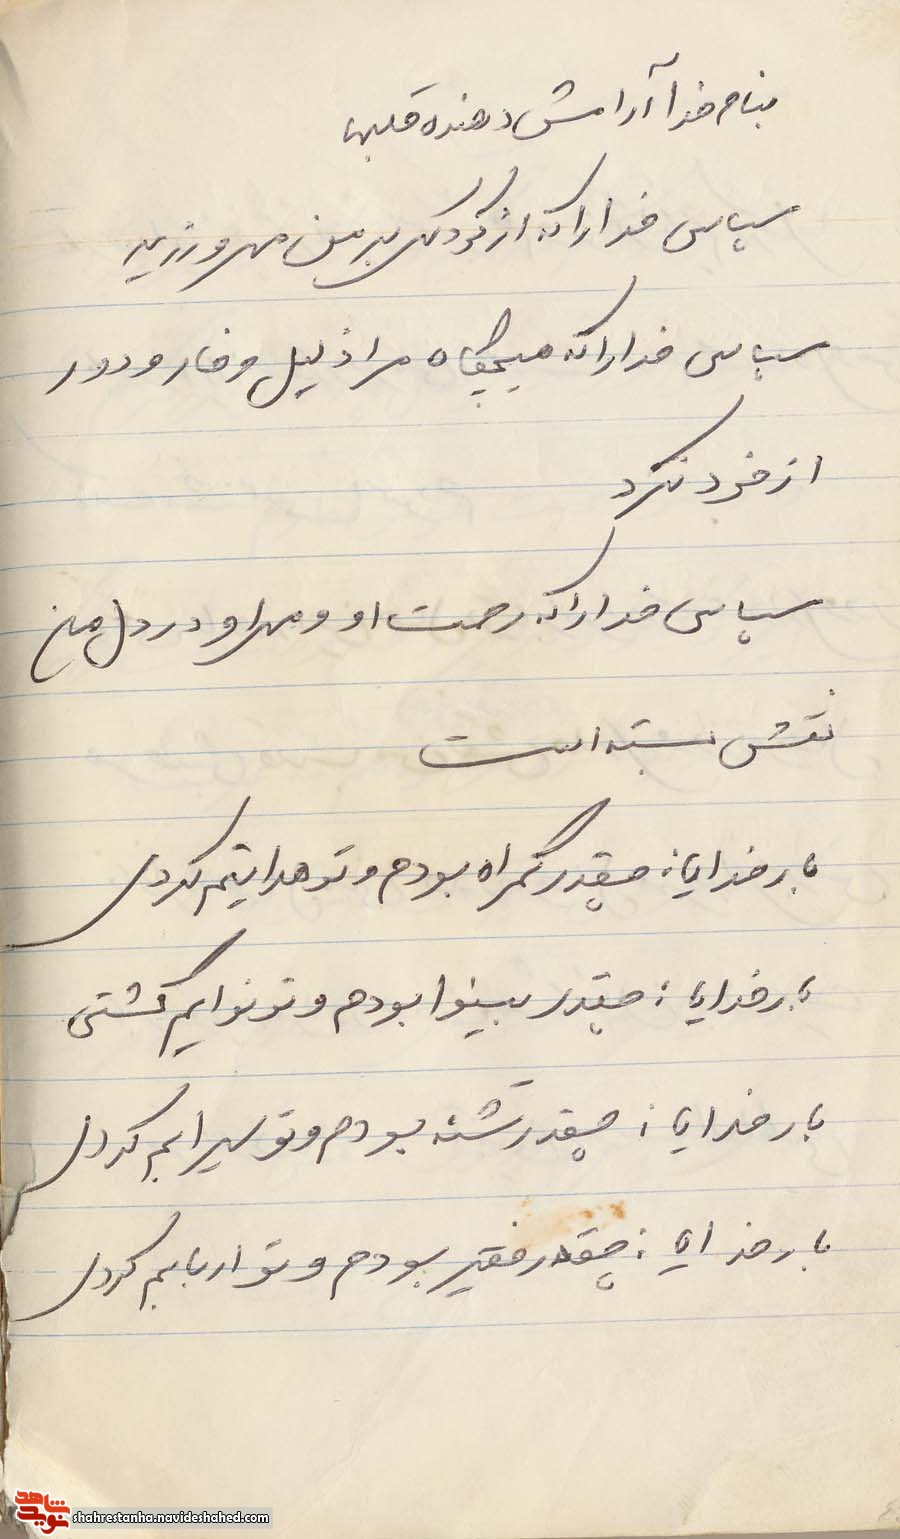 بنام خدا آرامش دهنده قلبها
سپاس خدا را که از کودکی بر من مهر ورزید
سپاس خدا را که هیچگاه مرا ذلیل و خار و دور
از خود نکرد
سپاس خدا را که رحمت او و مهر او در دل من
نقش بسته است
بار خدایا: چقدر گمراه بودم و تو هدایتم کردی
بار خدایا: چقدر بینوا بودم و تو نوایم گشتی
بار خدایا: چقدر تشنه بودم و تو سیرابم کردی
بار خدایا: چقدر فقیر بودم و تو اربابم کردی
شاهد
نوید
shahrestanha.navideshahed.com